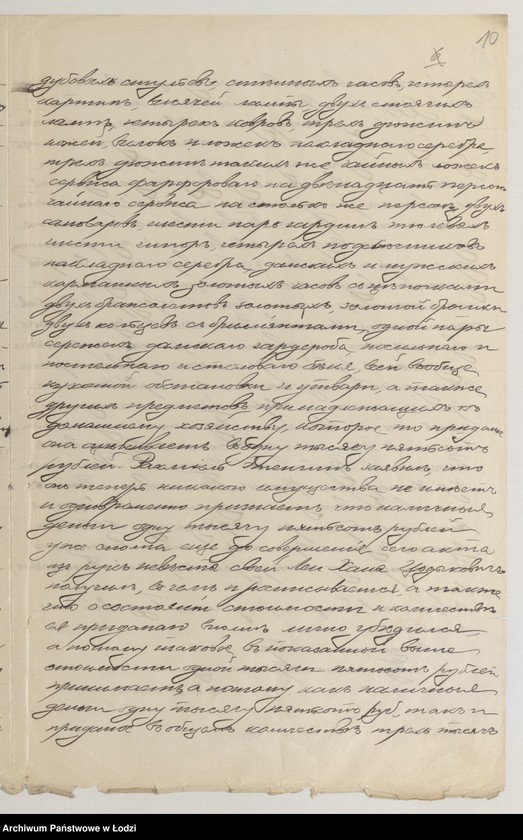 10
дубовыхъ стульевъ, стѣнныхъ часовъ, четырехъ
картинъ, висячей лампы, двухъ стоячихъ
лампъ, четырехъ ковровъ, трехъ дюжинъ
ножей, вилокъ и ложекъ накладного серебра
трехъ дюжинъ такихъ же чайныхъ ложекъ
сервиза фарфороваго на двѣнадцать персонъ
чайнаго сервиза на столько же персонъ, двухъ
самоваровъ, шести паръ гардинъ тюлевыхъ
шести шторъ, четырехъ подсвѣчниковъ
накладного серебра, дамскихъ и мужскихъ
карманныхъ золотыхъ часовъ съ цѣпочками
двухъ браслетовъ золотыхъ, золотой брошки
двухъ колецъ съ брильянтами, одной пары
серегъ, дамскаго гардероба, носильнаго и
постельнаго и столоваго бѣлья, всей вообще
кухонной обстановки и утвари, а также
другихъ предметовъ принадлежащихъ къ
домашнему хозяйству, которое то приданое
она оцѣниваетъ въ одну тысячу пятьсотъ
рублей. заявилъ, что
онъ теперь никакого имущества не имѣетъ
и одновременно признаетъ, что наличныя
деньги одну тысячу пятьсотъ рублей
уже сполна еще до совершенія сего акта
изъ рукъ невѣсты своей Хаи
получилъ, въ чемъ и росписывается, а также
что о состояніи, стоимости и количествѣ
приданаго вполнѣ лично убѣдился,
а потому таковое въ показанной выше
стоимости одной тысячи пятьсотъ рублей
принимаетъ, а потому какъ наличныя
деньги одну тысячу пятьсотъ руб., такъ и
приданое въ общемъ количествѣ трехъ тысячъ
Archiwum Państwowe w Łodzi